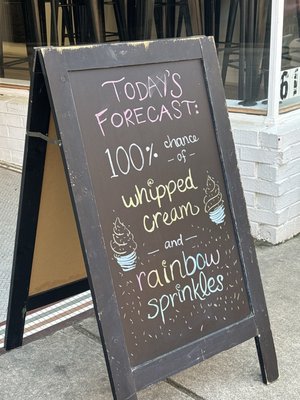 TODAY'S
FORECAST:
100% chance
- of -
whipped
cream
- and -
rainbow
sprinkles
6